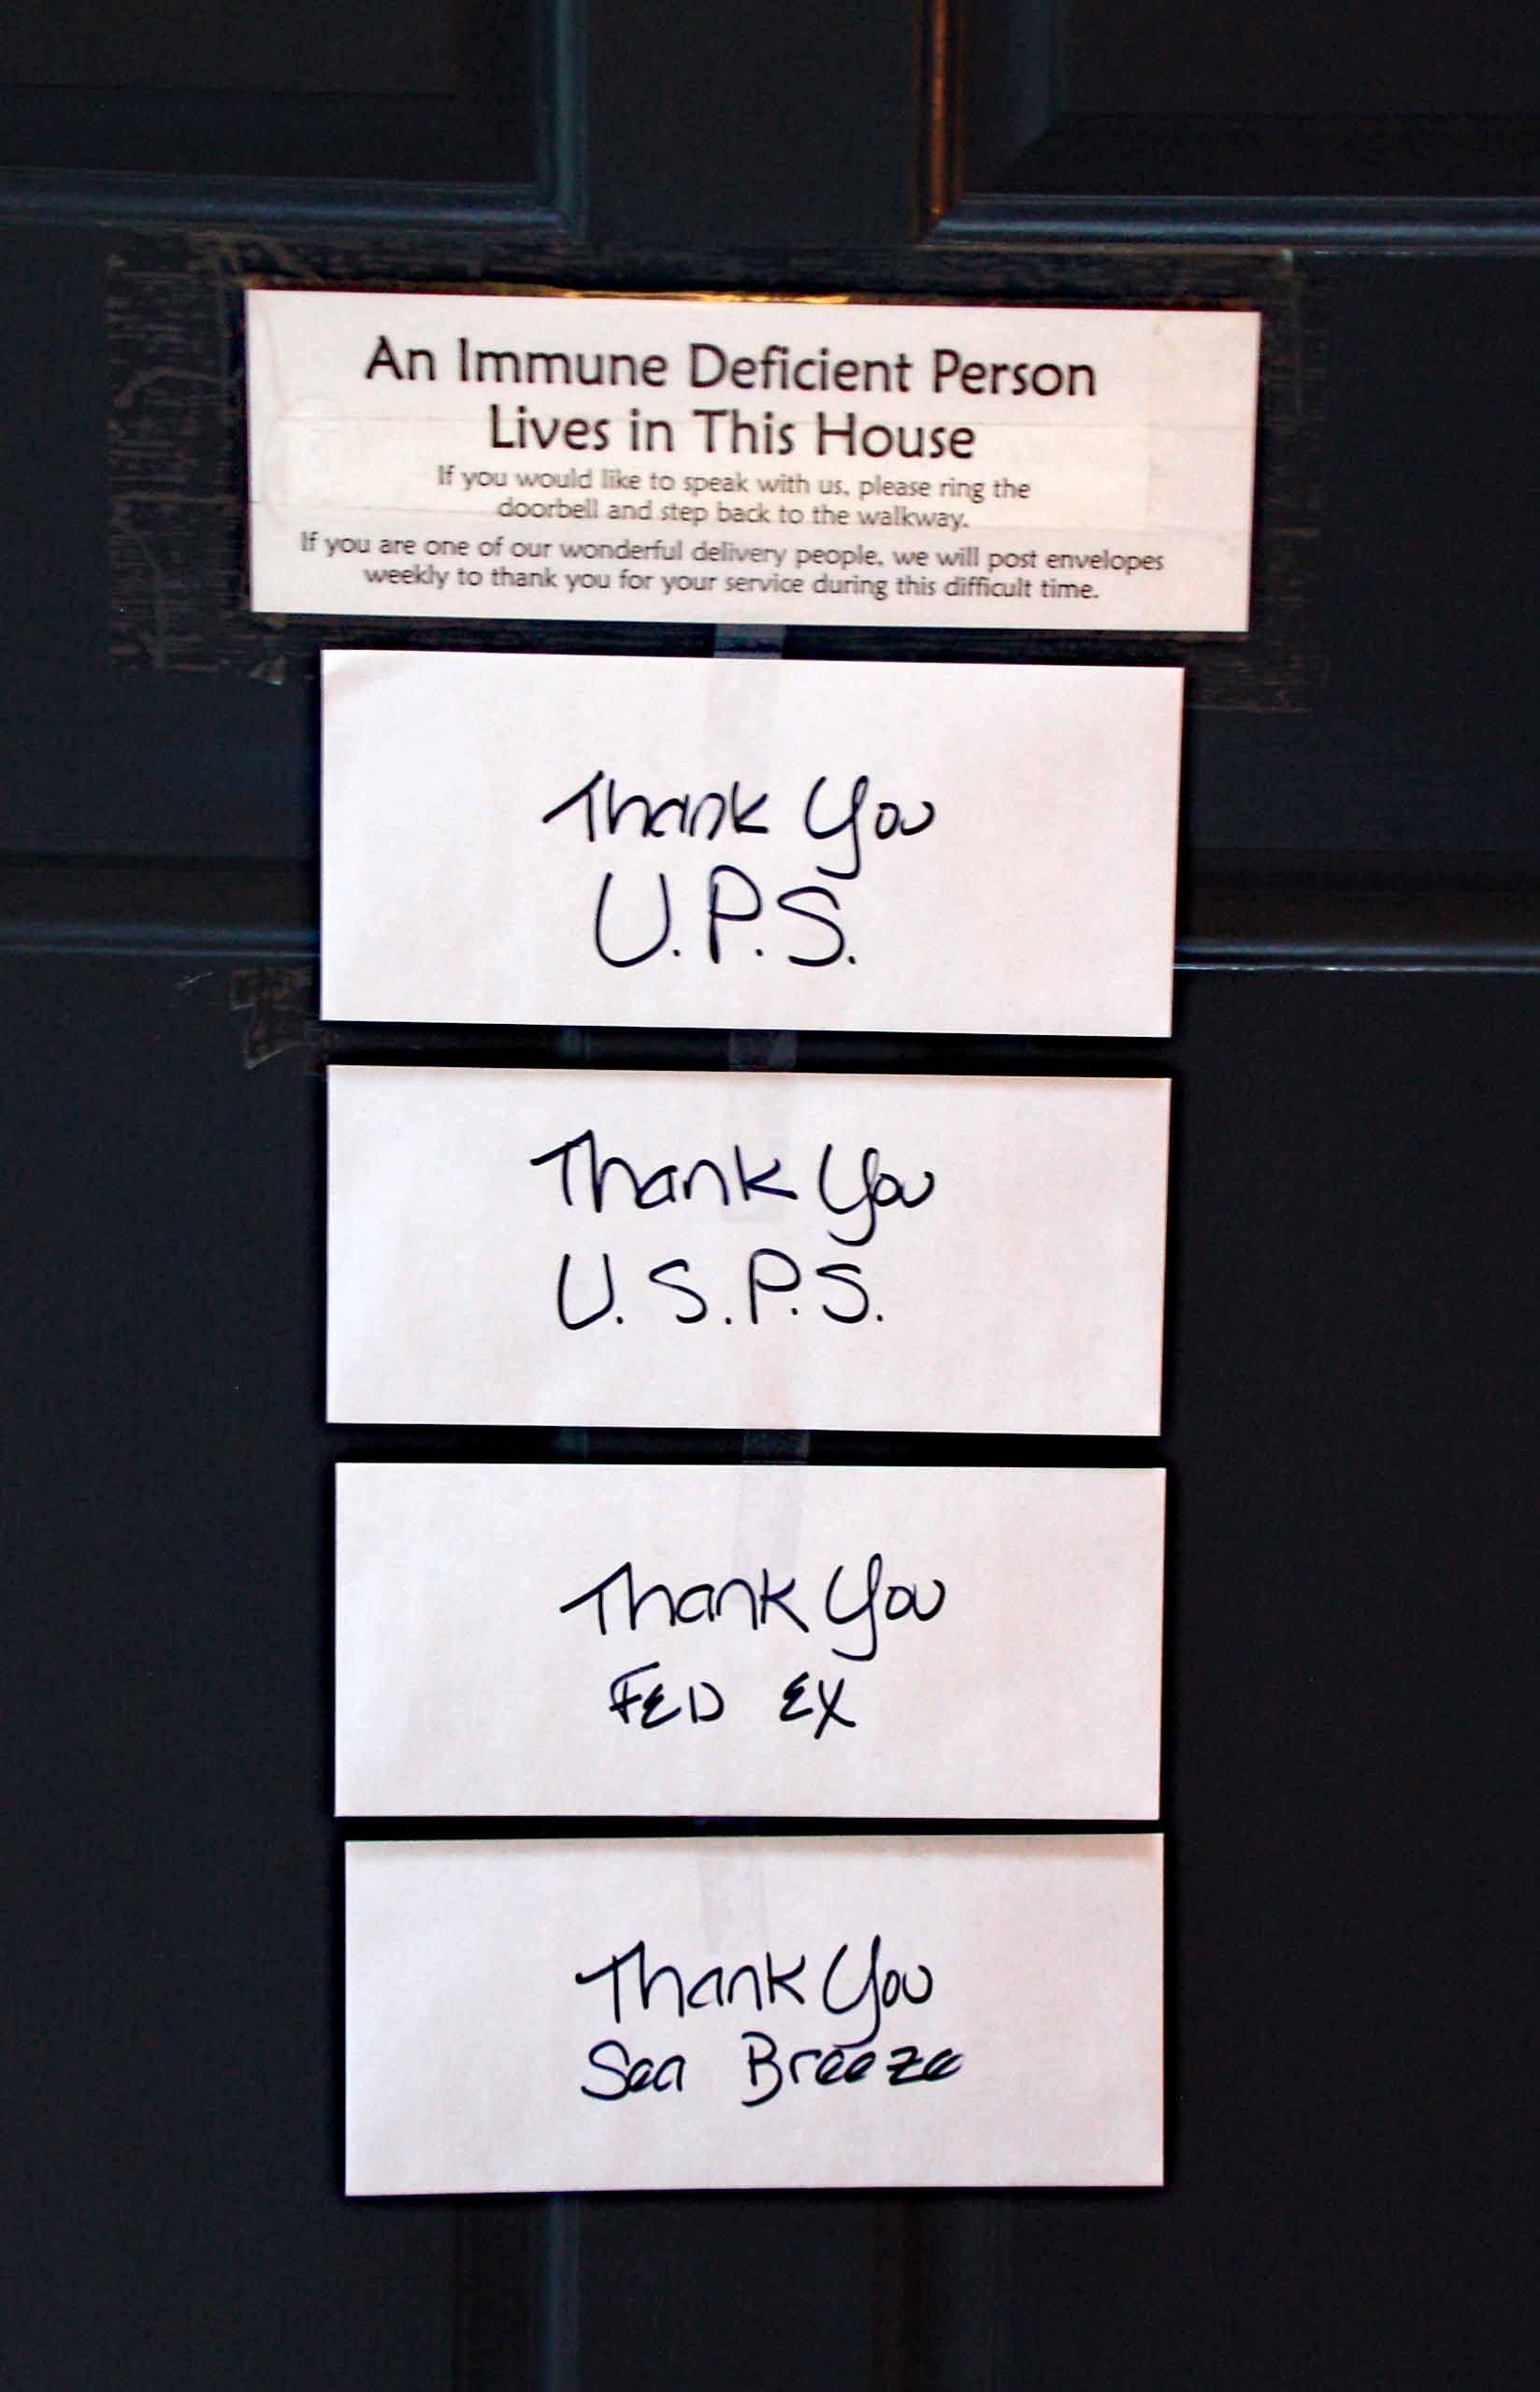 An Immune Deficient Person
Lives in This House
If you would like to speak with us, please ring the
doorbell and step back to the walkway.
If you are one of our wonderful delivery people, we will post envelopes
weekly to thank you for your service during this difficult time.
Thank You
U.P.S.
Thank You
U.S.P.S.
Thank You
FED EX
Thank You
Sea Breeze